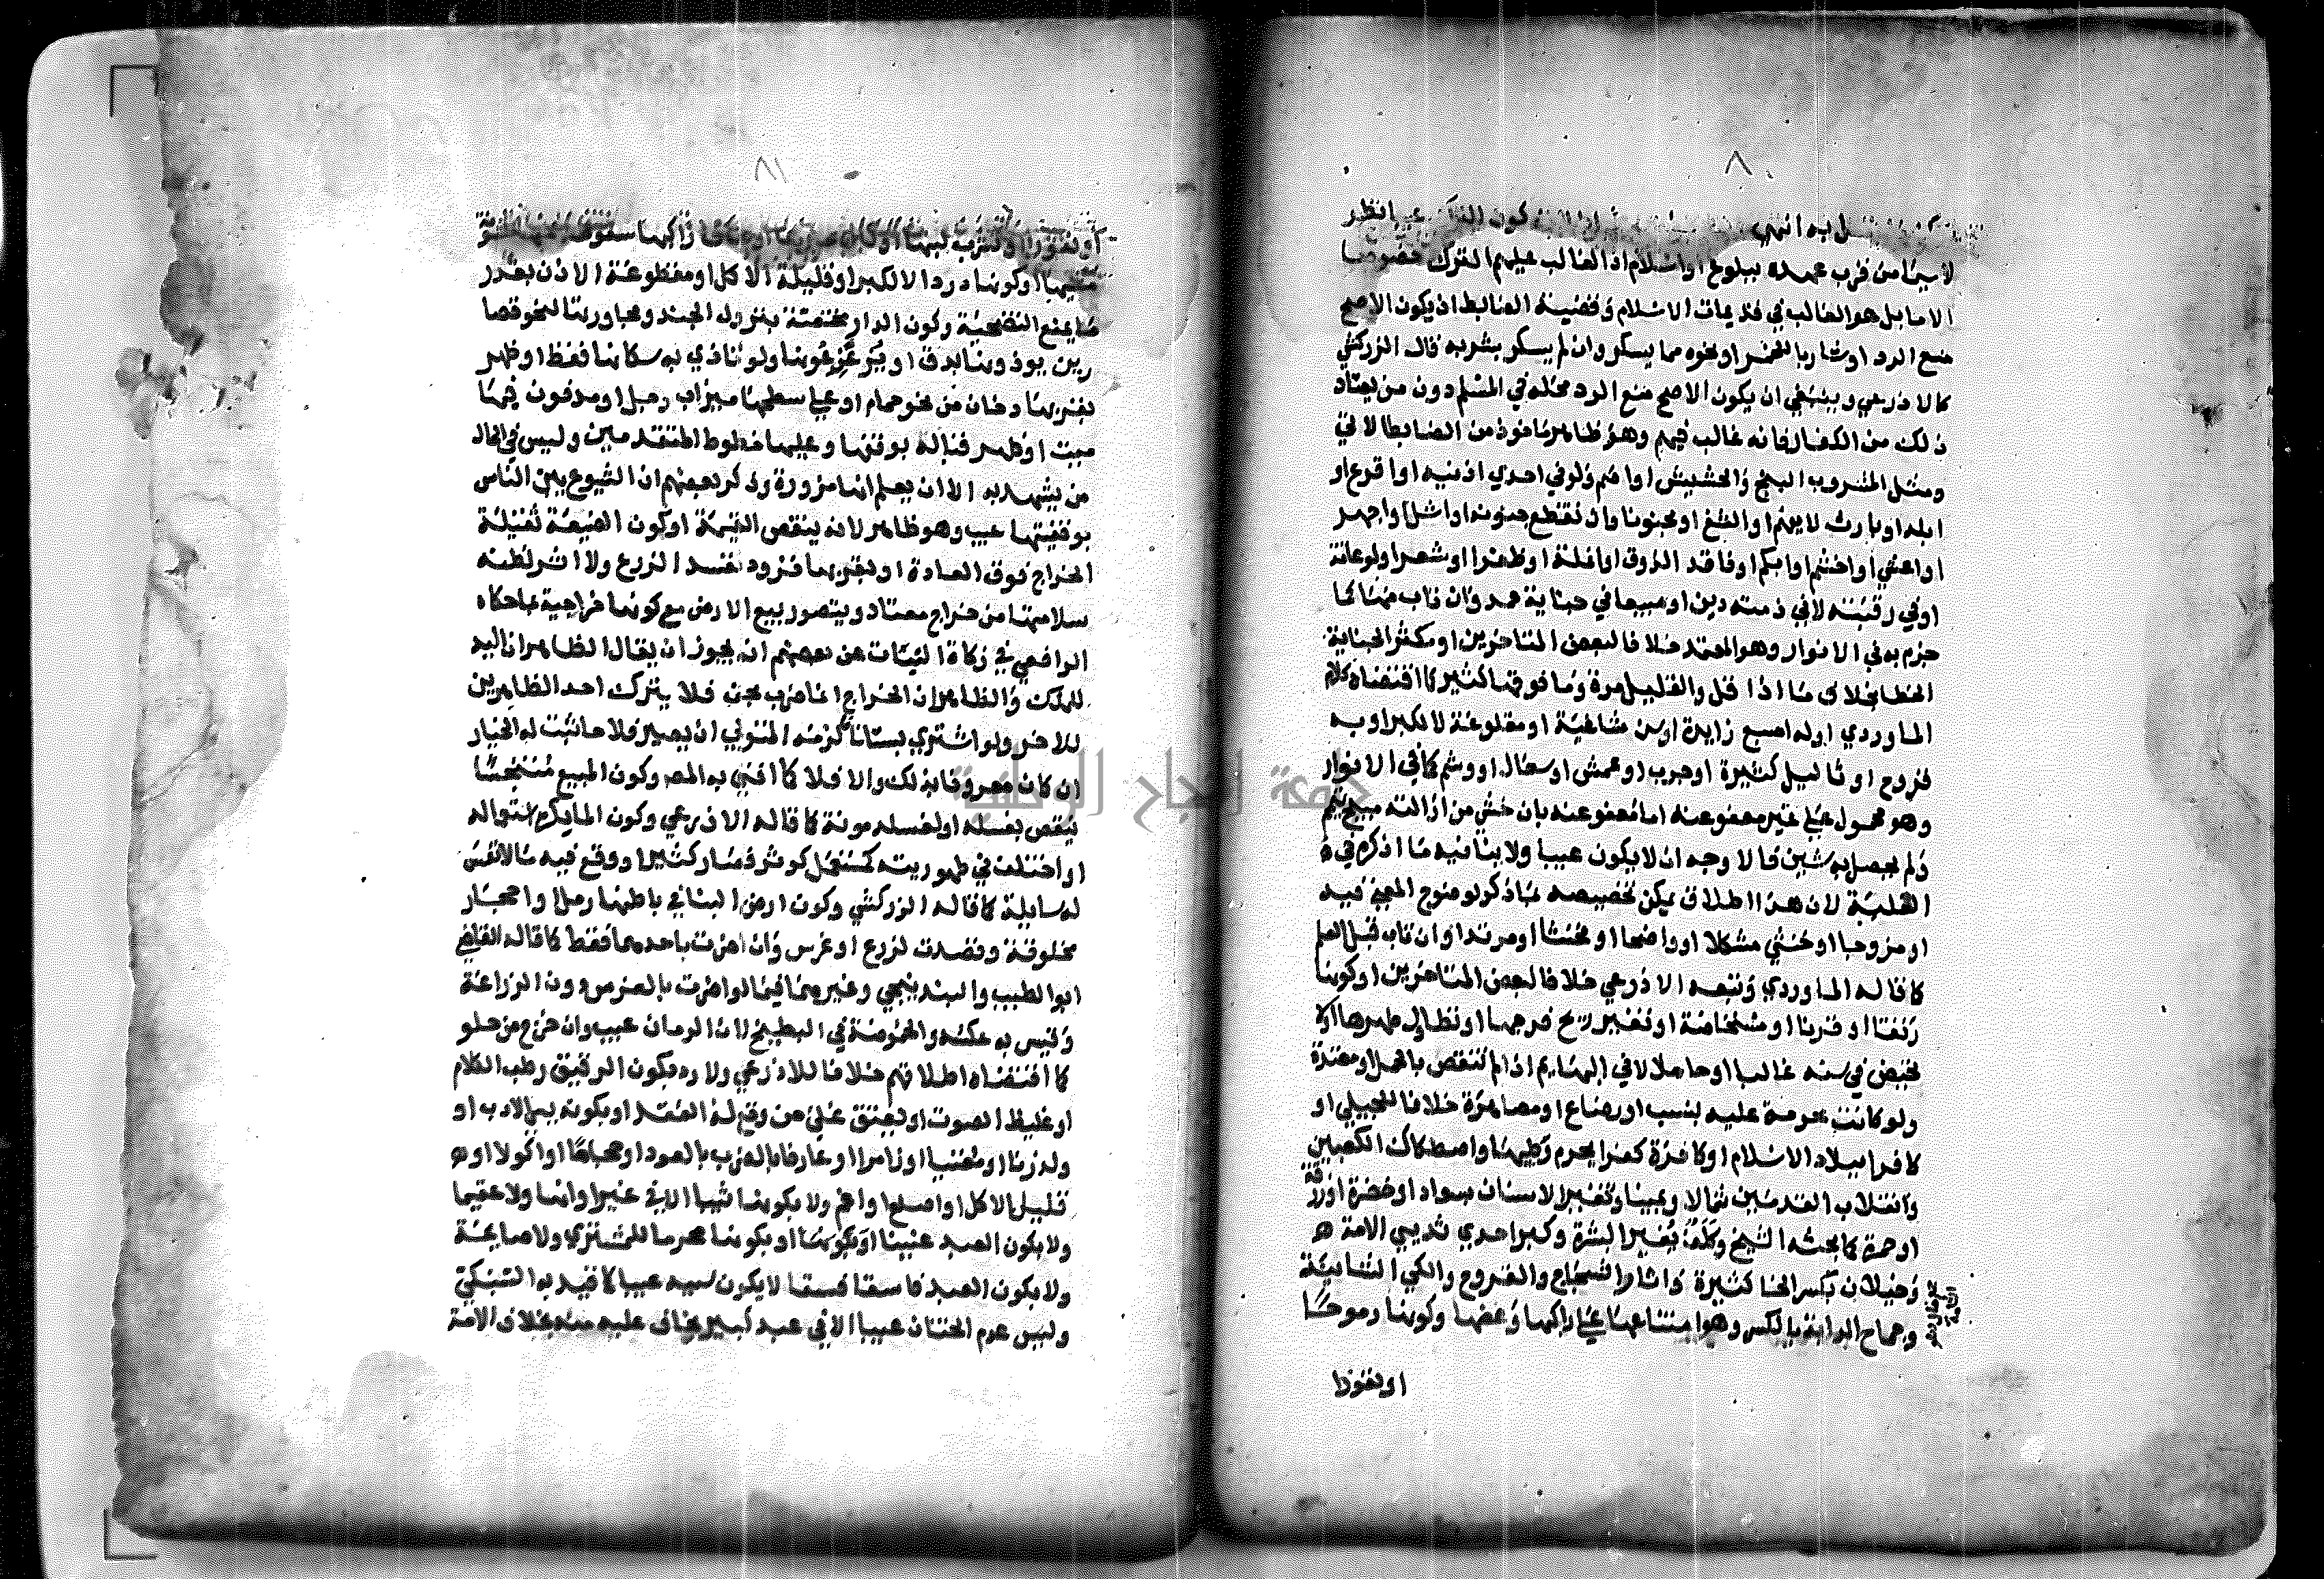 ٨٠
كون الترك عيبا نظر
لا سيما من قرب عهده ببلوغ او اسلام اذ الغالب عليهم الترك خصوصا
الاما بل هو الغالب في قديمات الاسلام وقضية الضابط ان يكون الاصح
منع الرد او شاربا للخمر او نحوه مما يسكر وان لم يسكر بشربه قال الزركشي
كالاذرعي وينبغي ان يكون الاصح منع الرد محله في المسلم دون من يعتاد
ذلك من الكفار فانه غالب فيهم وهو ظاهر ماخوذ من الضابط الاتي
ومثل المشروب البنج والحشيش او اصم ولو في احدي اذنيه او اقرع او
ابله او بارث لا يفهم او الثغ او مجنونا وان تقطع جنونه او اشل او اجهر
او اعشي او اخشم او ابكم او فاقد الذوق او انملة او ظفرا او شعرا ولو عانة
او في رقبته لا في ذمته دين او مبيعا في جناية عمد وان تاب منها كما
جزم به في الانوار وهو المعتمد خلافا لبعض المتاخرين او مكثر الجناية
الخطا بخلاف ما اذا قل والقليل مرة وما فوقها كثير كما اقتضاه كلام
الماوردي او له اصبع زايدة او سن شاغية او مقلوعة لا لكبر او به
قروح او ثاليل كثيرة او جرب او عمش او سعال او وشم كما في الانوار
وهو محمول علي غير معفو عنه اما معفو عنه بان خشي من ازالته مبيح تيمم
ولم يحصل به شين فالاوجه ان لا يكون عيبا ولا ينافيه ما اذكره في
القلية لان هذا اطلاق يمكن تخصيصه بما ذكر لوضوح المعني فيه
او مزوجا او خنثي مشكلا او واضحا او مخنثا او مرتدا وان تاب قبل العلم
كما قاله الماوردي وتبعه الاذرعي خلافا لبعض المتاخرين او كونها
رتقا او قرنا او مستحاضة او تغير ريح فرجها او تطاول طهرها او لا
تحيض في سنه غالبا او حاملا لا في البهايم اذا لم تنقص بالحمل او معتدة
ولو كانت محرمة عليه بنسب او رضاع او مصاهرة خلافا للجيلي او
كافرا ببلاد الاسلام او كافرة كفرا يحرم وطيها واصطكاك الكعبين
وانقلاب القدمين شمالا ويمينا وتغير الاسنان بسواد او خضرة او زرقة
او حمرة كما بحثه الشيخ وكلف يغير البشرة وكبر احدي ثديي الامة
وخيلان بكسر الخا كثيرة واثار الشجاج والقروح والكي الشائنة
وجماح الدابة بالكسر وهو امتناعها علي راكبها وعضها وكونها رموحا
او نفورا
٨١
او نفورا او تشرب لبنها
منها او كونها دردا لا لكبر او قليلة الاكل او مقطوعة الاذن بقدر
ما يمنع التضحية وكون الدار مختصة بنزول الجند ومجاورتها لنحو قصا
رين يوذونها بالدق او يزعزعونها ولو تاذي به سكانها فقط او ظهر
بقربها دخان من نحو حمام او علي سطحها ميزاب رجل او مدفون فيها
ميت او ظهر قبالة بوقفها وعليها خطوط المتقدمين وليس في الحال
من يشهد به الا ان يعلم انها مزورة وذكر بعضهم ان الشيوع بين الناس
بوقفيتها عيب وهو ظاهر لانه ينقص القيمة او كون الضيعة ثقيلة
الخراج فوق العادة او بقربها قرود تفسد الزرع ولا اثر لظنه
سلامتها من خراج معتاد ويتصور بيع الارض مع كونها خراجية بما حكاه
الرافعي في زكاة النبات عن بعضهم انه يجوز ان يقال الظاهر ان اليد
للملك والظاهر ان الخراج انما ضرب بحق فلا يترك احد الظاهرين
للاخر ولو اشتري بستانا فالزمه المتولي ان يصير فلاحا ثبت له الخيار
ان كان معروفا بذلك والا فلا كما افتي به المص وكون المبيع متنجسا
ينقص بغسله او لغسله مونة كما قاله الاذرعي وكون الما يكره استعماله
او اختلف في طهوريته كمستعمل كوثر فصار كثيرا او وقع فيه ما لا نفس
له سايلة كما قاله الزركشي وكون ارض البنا في باطنها رمل او احجار
مخلوقة وقصدت لزرع او غرس وان اضرت باحدهما فقط كما قاله القاضي
ابو الطيب والبندنيجي وغيرهما فيما لو اضرت بالغرس دون الزراعة
وقيس به عكسه والحموضة في البطيخ لا الرمان عيب وان خرج من حلو
كما اقتضاه اطلاقهم خلافا للاذرعي ولا رد بكون الرقيق رطب الكلام
او غليظ الصوت او يعتق علي من وقع له العقد او بكونه سيء الادب او
ولد زنا او مغنيا او زامرا او عارفا بالضرب بالعود او حجاما او اكولا او
قليل الاكل او اصلع او اغم ولا بكونها ثيبا الا في غير اوانها ولا عقيما
ولا بكون العبد عنينا او بكونها او بكونها محرما للمشتري ولا صايمة
ولا بكون العبد فاسقا فسقا لا يكون سببه عيبا كما قيد به السبكي
وليس عدم الختان عيبا الا في عبد كبير يخاف عليه منه بخلاف الامة